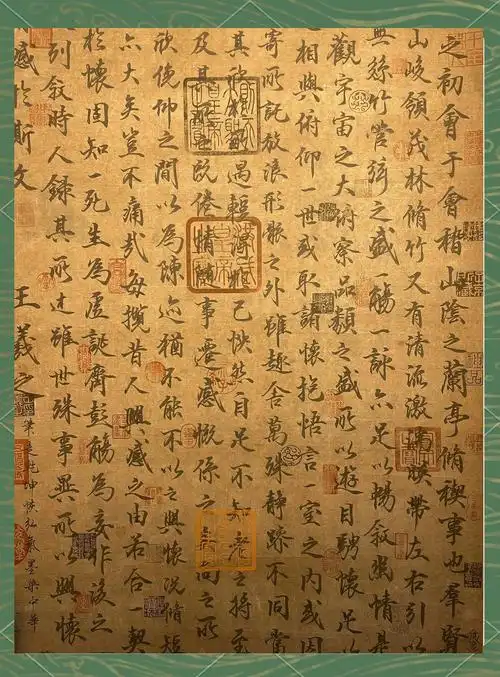 之初會于會稽山陰之蘭亭脩禊事也羣賢
山峻領茂林脩竹又有清流激湍暎帶左右引以
無絲竹管弦之盛一觴一詠亦足以暢敘幽情是
觀宇宙之大俯察品類之盛所以遊目騁懷足以
相與俯仰一世或取諸懷抱悟言一室之內或因
寄所託放浪形骸之外雖趣舍萬殊靜躁不同當
其欣於所遇輙得於己怏然自足不知老之將至
及其所之既倦情隨事遷感慨係之矣向之所
欣俛仰之間以為陳迹猶不能不以之興懷況脩短
亦大矣豈不痛哉每攬昔人興感之由若合一契
於懷固知一死生為虛誕齊彭殤為妄作後之
列敘時人錄其所述雖世殊事異所以興懷
感於斯文 王羲之
乾坤 墨染中華